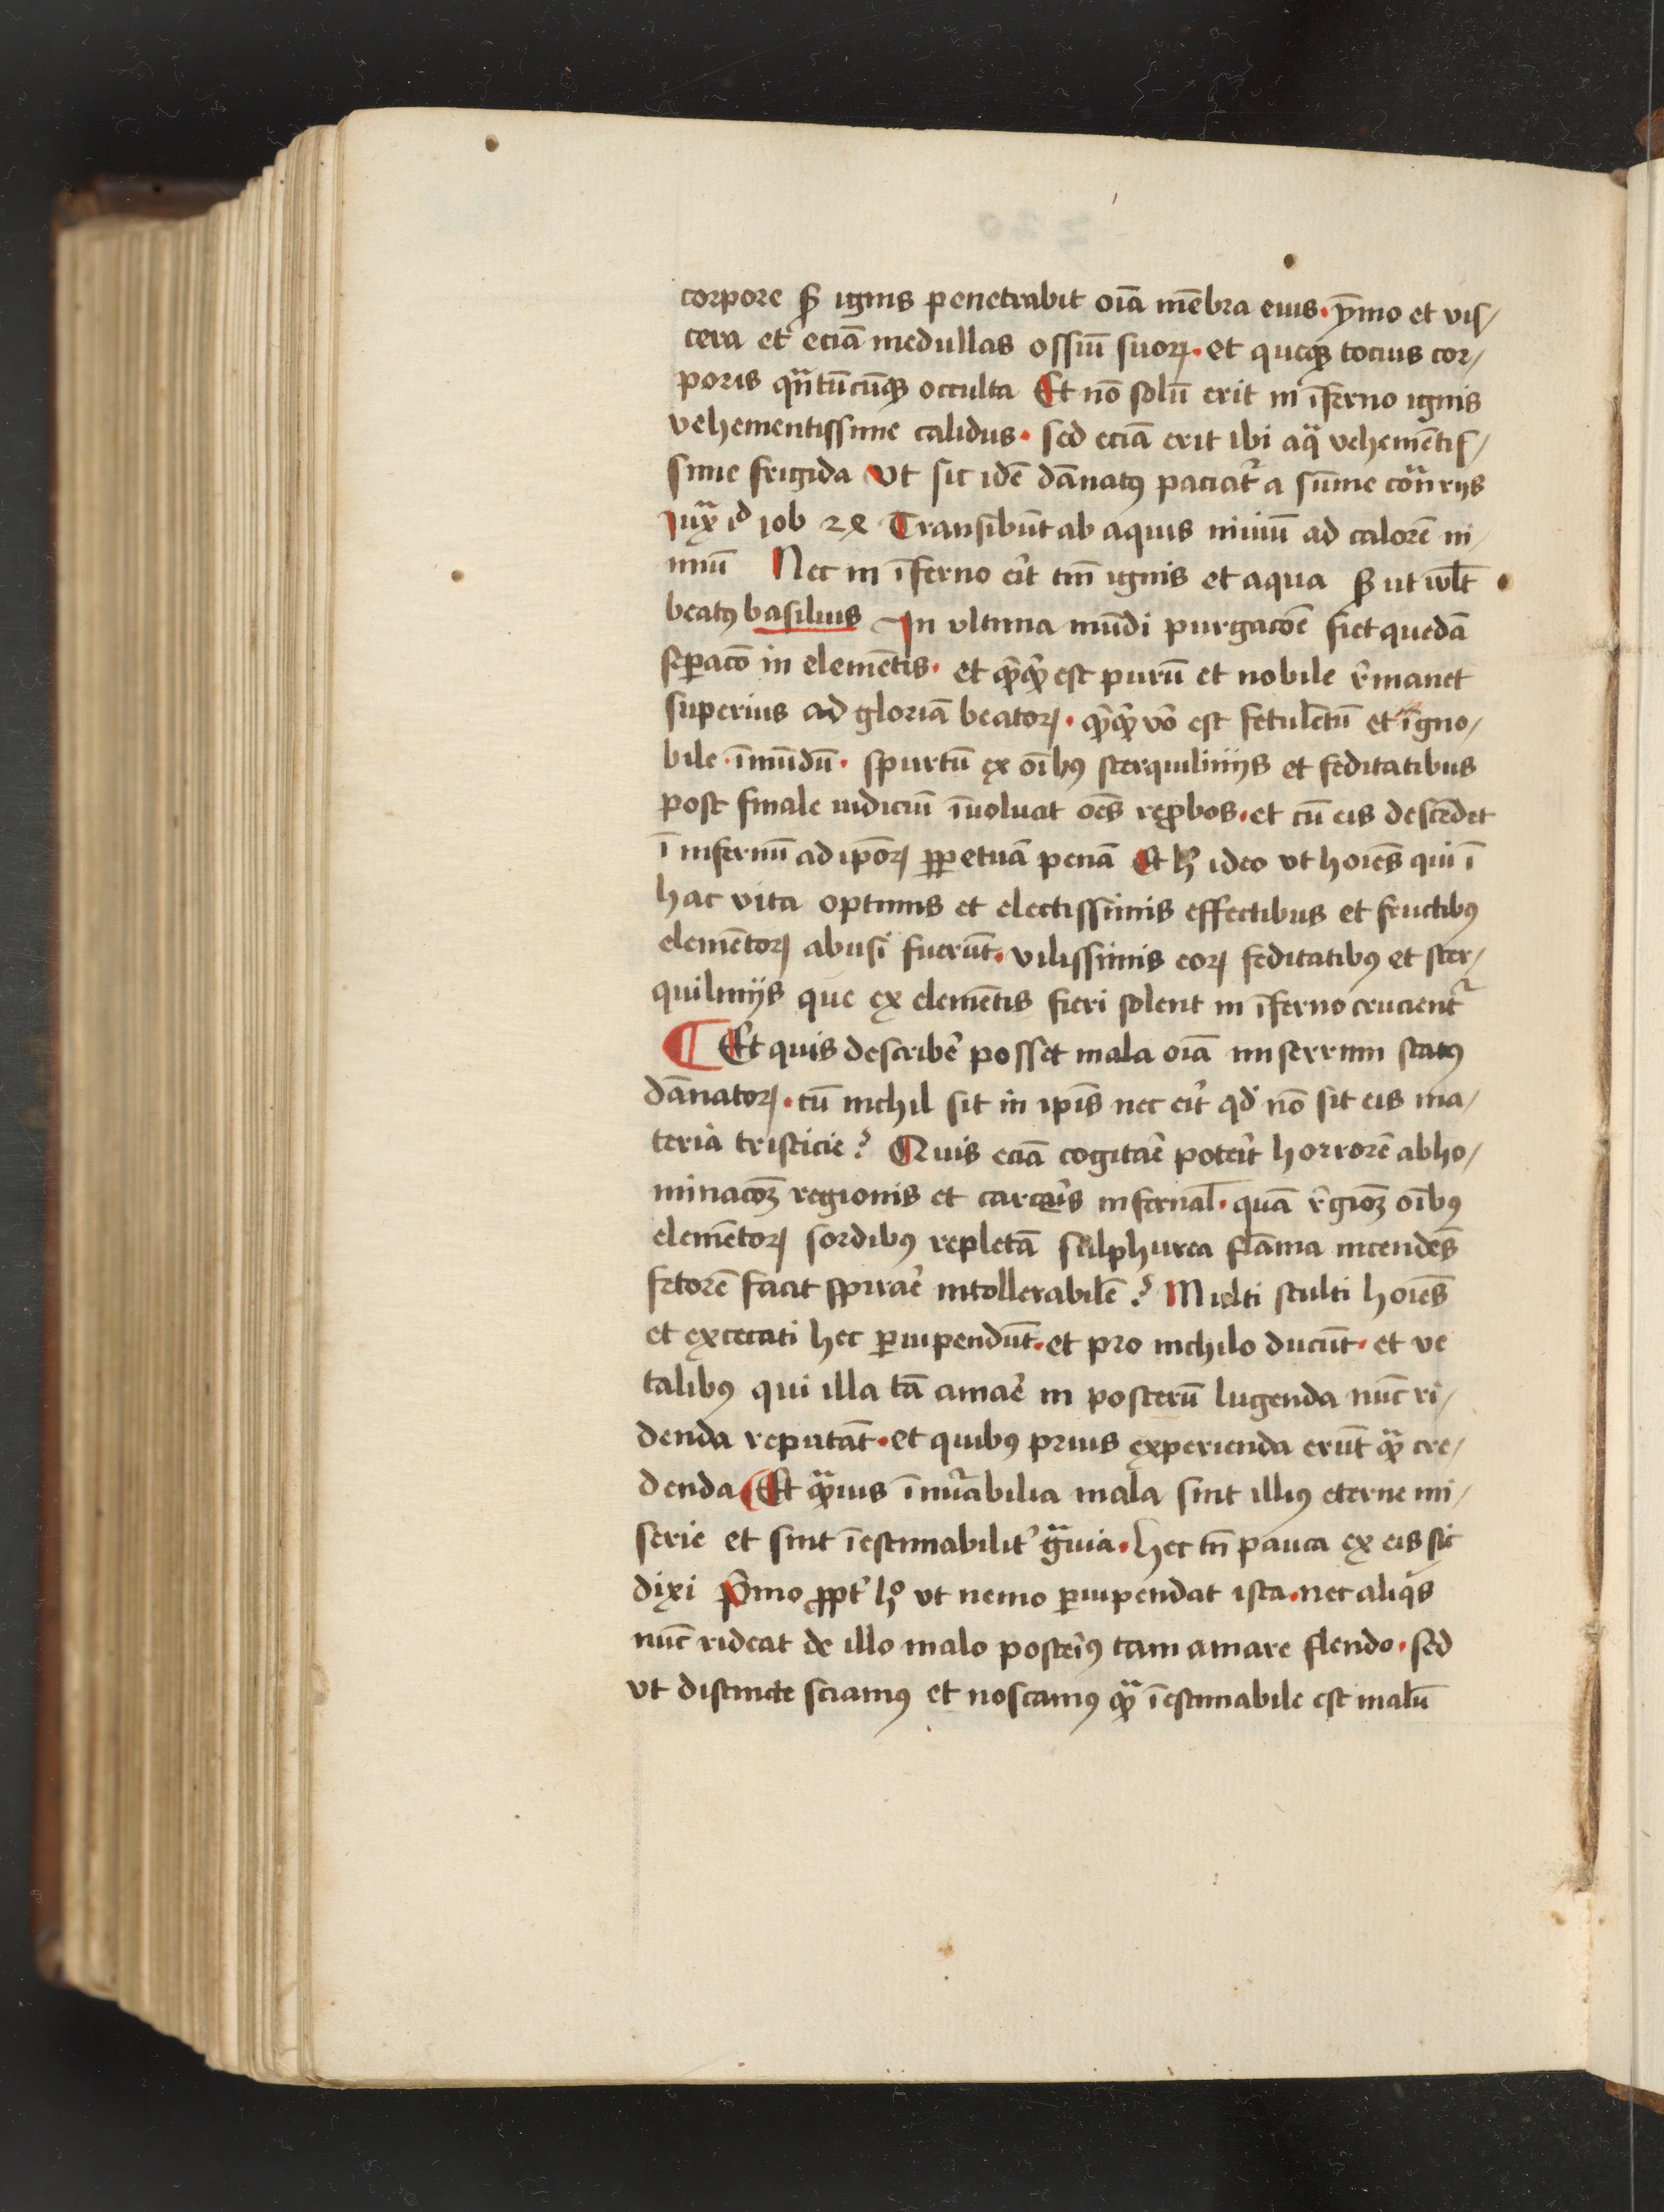 corpore sꝫ ignis penetrabit oīa mēbra eius · ymo et vis/
cera et eciā medullas ossiū suoꝝ · et queqꝫ tocius cor/
poris qⁿtūcūqꝫ occulta Et nō solū erit in īferno ignis
vehementissime calidus · sed eciā erit ibi aqᵃ vehemētis/
sime frigida Vt sic idē dānatꝰ paciatᷣ a sūme cōᵃrijs
Juxᵃ id Job 24 Transibūt ab aquis niuiū ad calorē ni/
miū Nec in īferno eīt tm̄ ignis et aqua sꝫ ut wlt
beatꝰ basilius In vltima mūdi purgacōe fiet quedā
seꝑacō in elemētis · et qͥcqͥd est purū et nobile r̄manet
superius ad gloriā beatoꝝ · qͥcqͥd vō est fetulētū et īgno/
bile · īmūdū · spurtū ex oībꝰ sterquilinijs et feditatibus
post finale iudiciū īuoluat oēs reꝓbos · et cū eis descēdit
ī infernū ad ipōꝝ ꝑpetuā penā Et hͦ ideo vt hoīes qui ī
hac vita optimis et electissimis effectibus et fructibꝰ
elemētoꝝ abusi fuerūt · vilissimis eoꝝ feditatibꝰ et ster/
quilinijs que ex elemētis fieri solent in īferno crucientᷣ
¶ Et quis describe᷑ posset mala oīa miserrimi statꝰ
dānatoꝝ · cū nichil sit in ipīs nec eīt qd̕ nō sit eis ma/
teria tristicie ? Quis eciā cogitāe potēit horrorē abho/
minacōꝫ regionis et carceīs infernal̄ · quā r̄gioꝫ oībꝰ
elemētoꝝ sordibꝰ repletā sulphurea flāma incendēs
fetorē facit spirāe intollerabilē ? Multi stulti hoīes
et excecati hec ꝑuipendūt · et pro nichilo ducūt · et ve
talibꝰ qui illa tā amāe in posterū lugenda nūc ri/
denda reputāt · et quibꝰ prius experienda erūt qᵃ cre/
denda Et qᵃuis īnūabilia mala sint illiꝰ eterne mi/
serie et sint īestimabilit᷑ gᵃuia · hec tn̄ pauca ex eis sic
dixi Pͥmo ꝓpt᷑ hͦ vt nemo ꝑuipendat ista · nec aliqͥs
nūc rideat de illo malo postēiꝰ tam amare flendo · sed
vt distincte sciamꝰ et noscamꝰ qᵃ īestimabile est malū